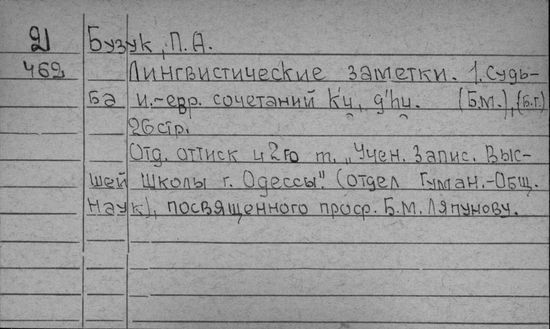 Д Бузук, П. А.
462 Лингвистические заметки. 1. Судь-
ба и.-евр. сочетаний k'u̯, g'hu̯. (Б.М.), (Б.г.)
26 стр.
Отд. оттиск из 2го т. „Учен. Запис. Выс-
шей школы г. Одессы". (отдел Гуман.-Общ.
Наук), посвященного проф. Б.М. Ляпунову.